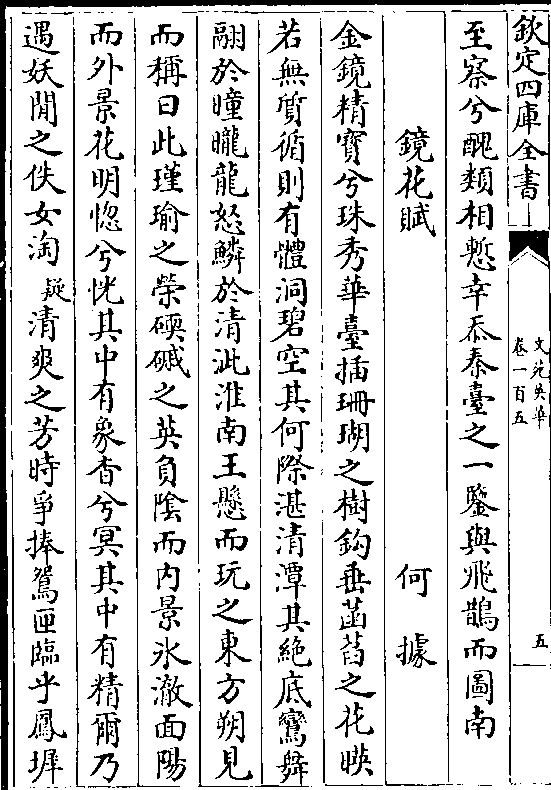 欽定四庫全書
文苑英華
卷一百五
五
至察兮醜類相慙幸忝秦臺之一鑒與飛鵲而圖南
鏡花賦　何據
金鏡精寶兮珠秀華臺插珊瑚之樹鈎垂菡萏之花暎
若無質循則有體洞碧空其何際湛清潭其絶底鸞舞
翮於曈曨龍怒鱗於清泚淮南王懸而玩之東方朔見
而稱曰此瑾瑜之榮碝磩之英負陰而内景氷澈面陽
而外景花明惚兮恍其中有象杳兮冥其中有精爾乃
遇妖閒之佚女淘疑清爽之芳時爭捧鴛匣臨乎鳳墀